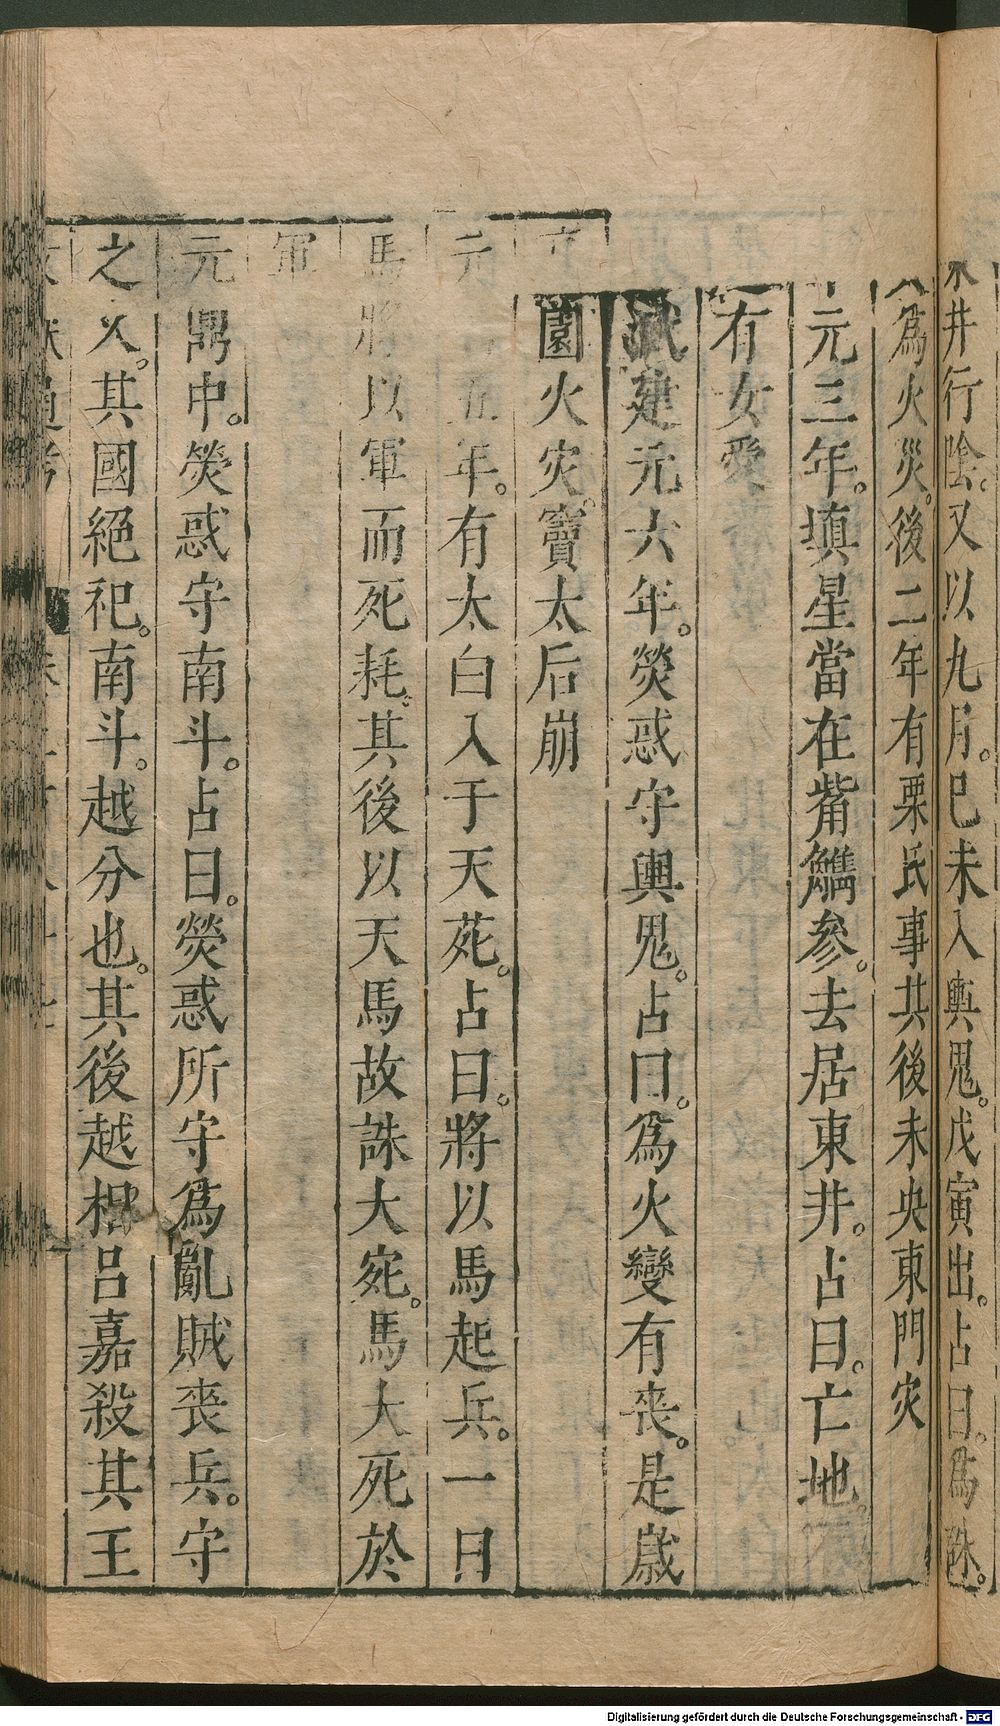 東井行陰又以九月己未入輿鬼戊寅出占曰爲誅
爲火災後二年有栗氏事其後未央東門灾
中元三年填星當在觜觿參去居東井占曰亡地
有女憂
武建元六年熒惑守輿鬼占曰爲火變有喪是歲高
園火灾竇太后崩
元 五年有太白入于天苑占曰將以馬起兵一曰
馬將以軍而死耗其後以天馬故誅大宛馬大死於
軍
元鼎中熒惑守南斗占曰熒惑所守爲亂賊喪兵守
之久其國絕祀南斗越分也其後越相呂嘉殺其王
文獻通考 卷二百八十七
Digitalisierung gefördert durch die Deutsche Forschungsgemeinschaft - DFG